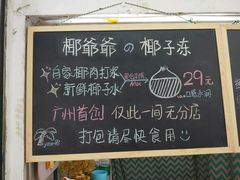 椰爺爺の椰子冻
自家椰肉打浆
新鲜椰子水
29元
广州首创 仅此一间无分店
打包请尽快食用